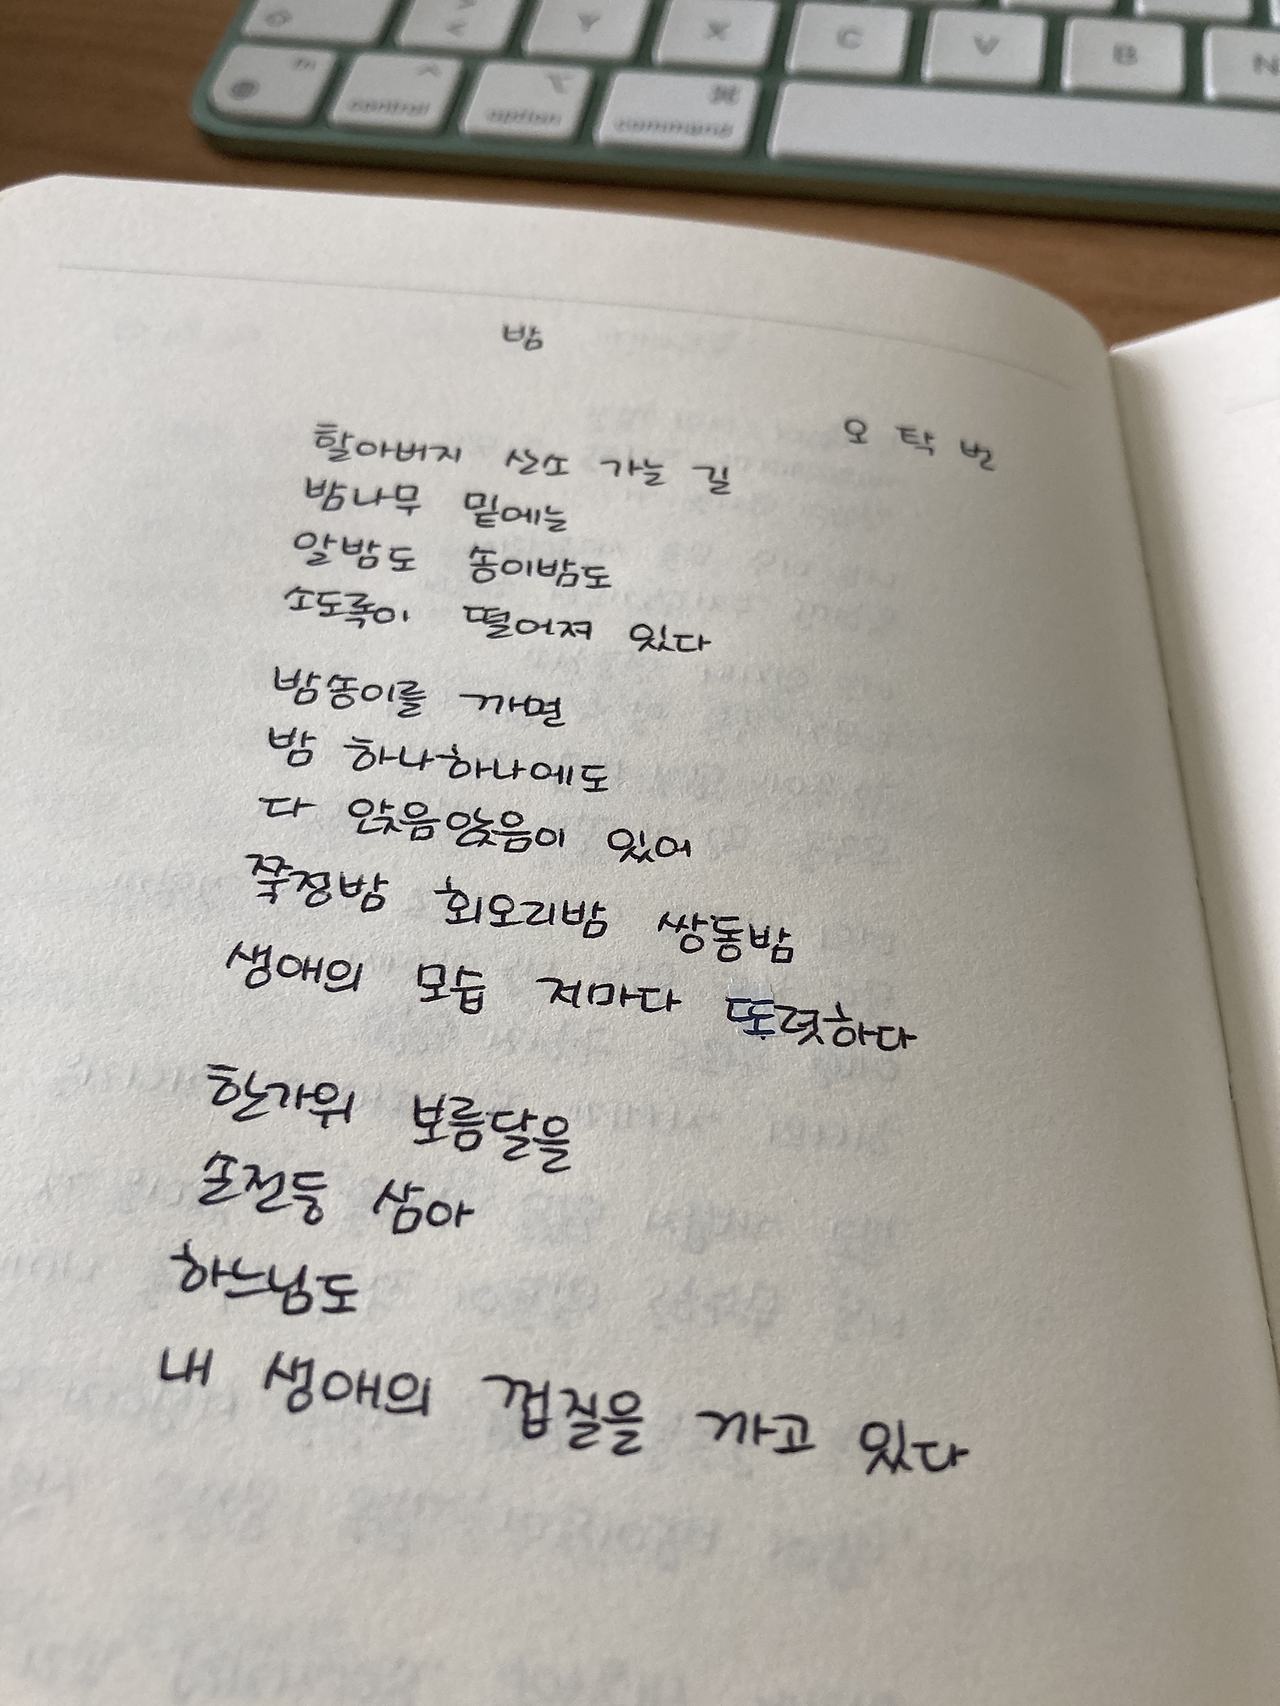 Y X C V B N
fn control option command
밤
오탁번
할아버지 산소 가는 길
밤나무 밑에는
알밤도 송이밤도
소도록이 떨어져 있다
밤송이를 까면
밤 하나하나에도
다 앉음앉음이 있어
쭉정밤 회오리밤 쌍동밤
생애의 모습 저마다 또렷하다
한가위 보름달을
손전등 삼아
하느님도
내 생애의 껍질을 까고 있다